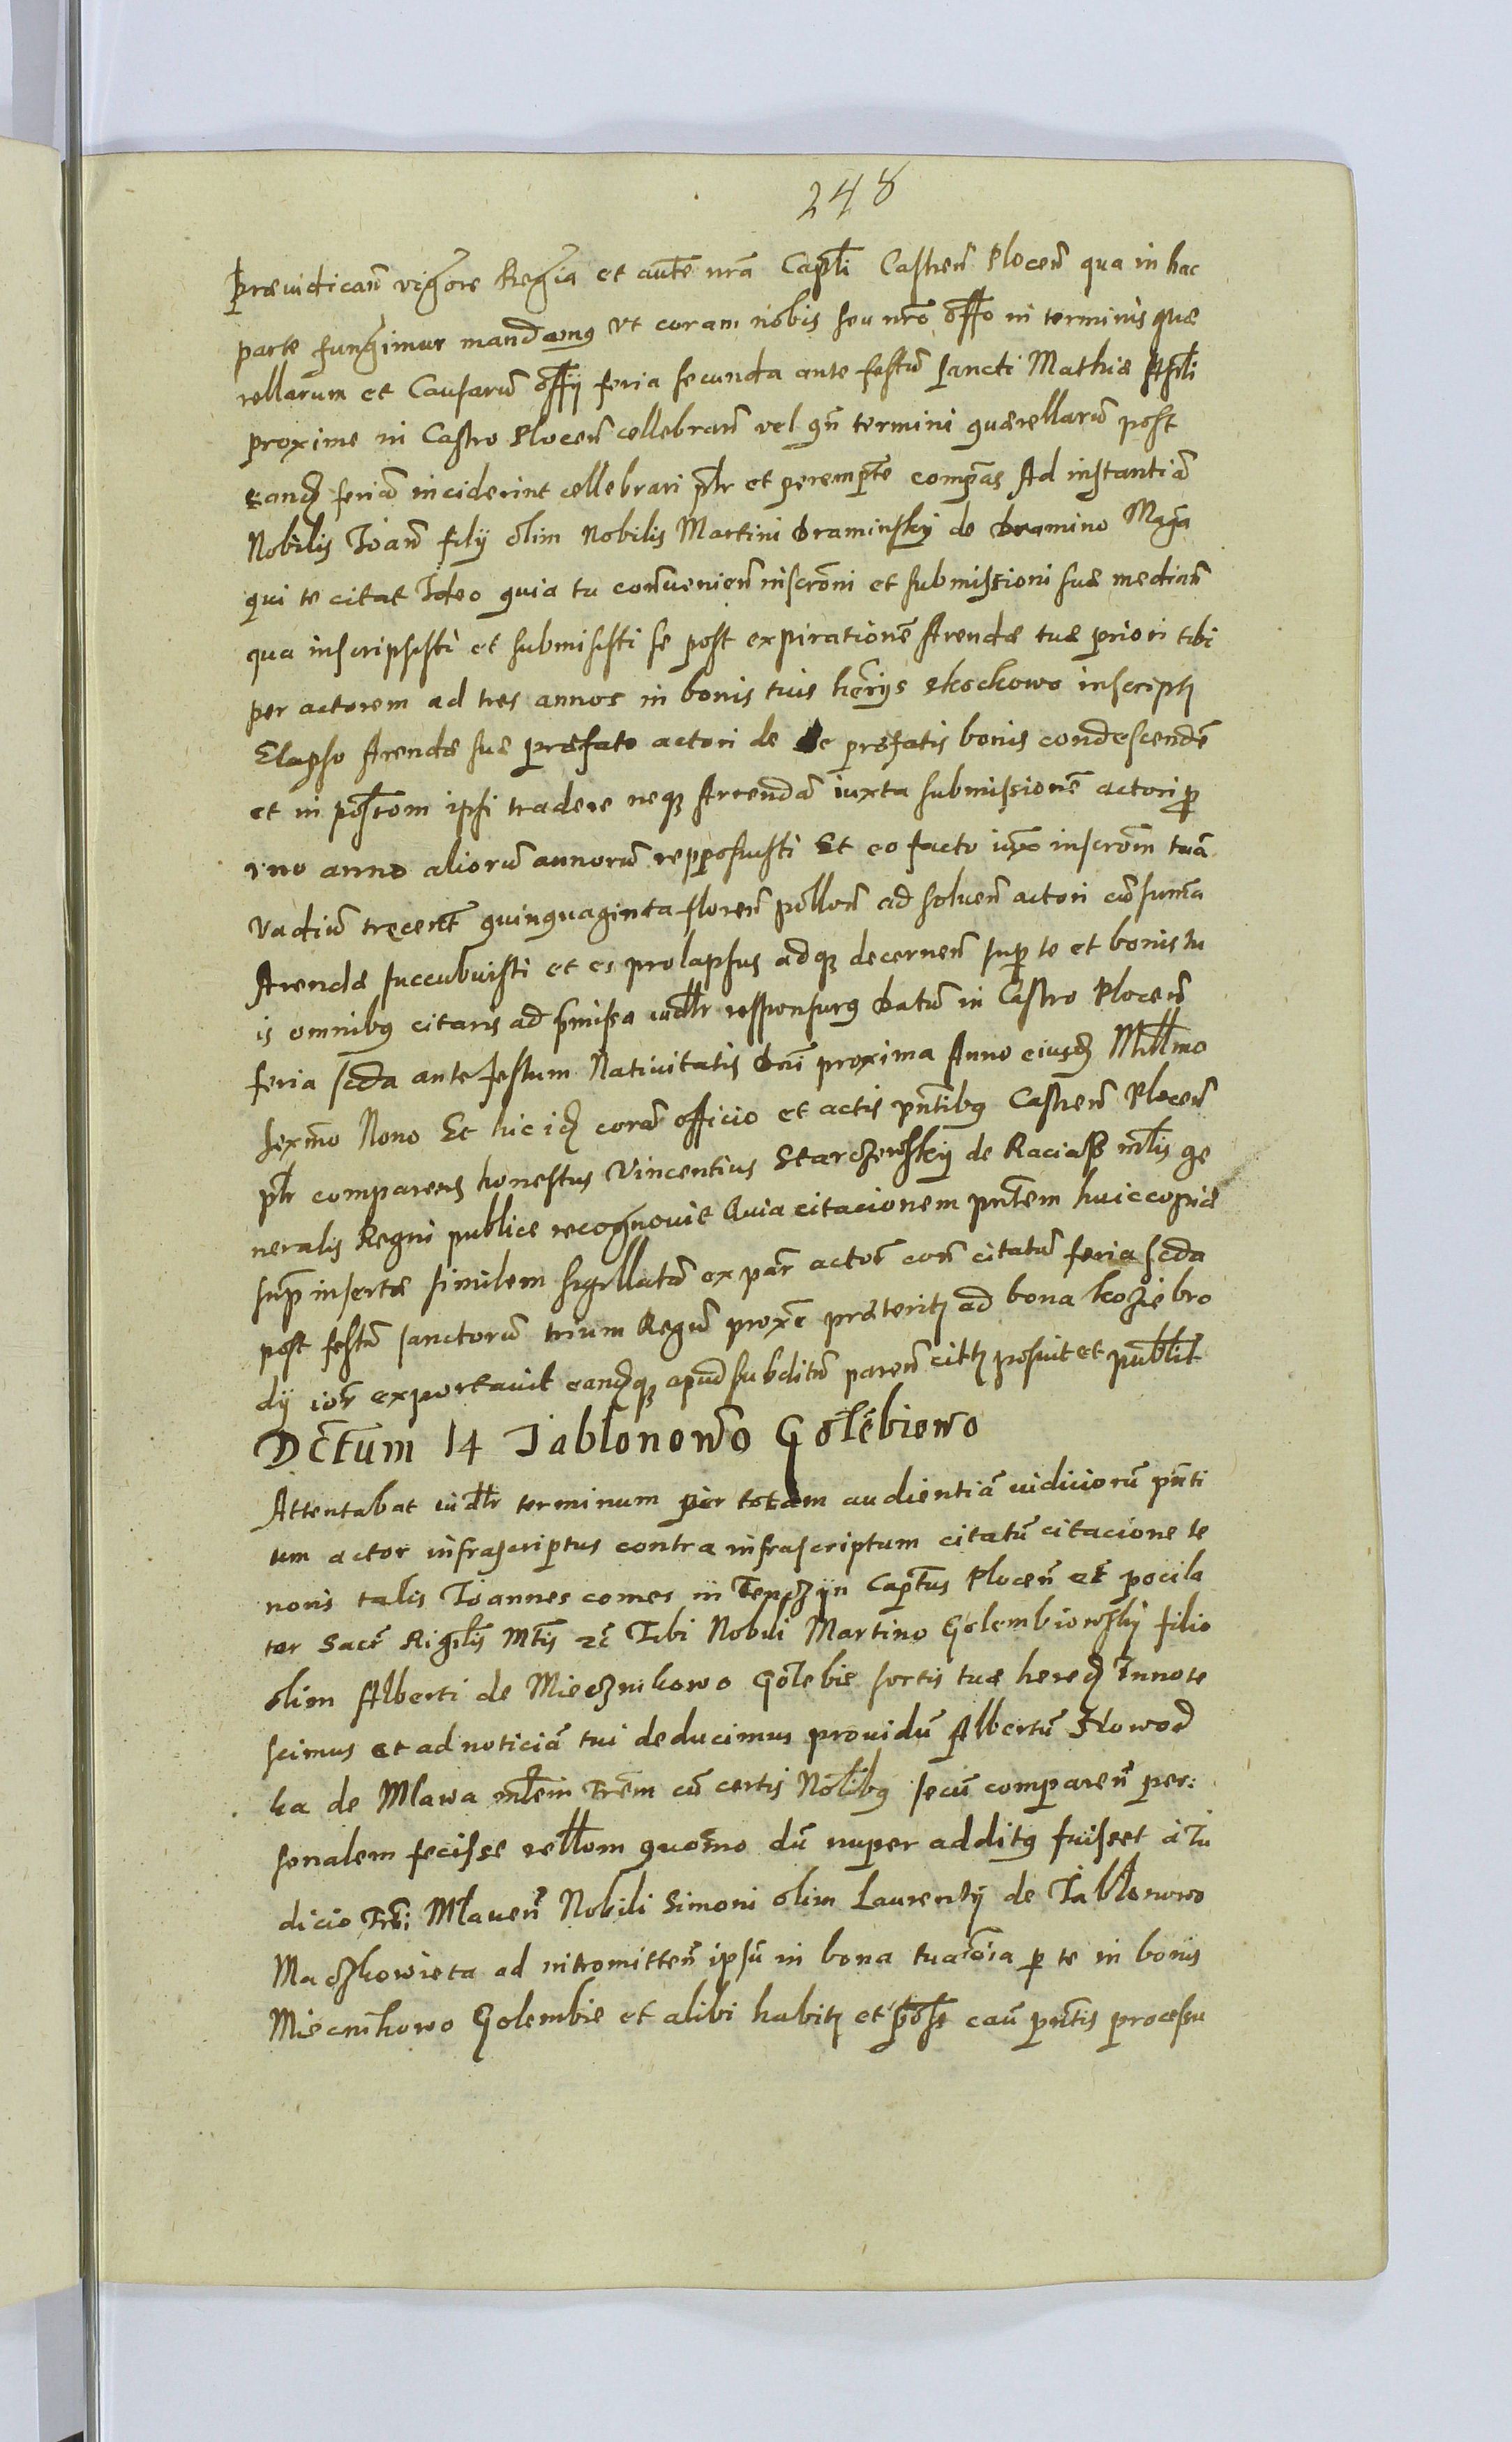 248
præiudican̄ vigore Regia et auĉte nrā Capłi Castren̄ Plocen̄ qua in hac
parte fungimur mandamus Vt coram nobis seu nrō offo in terminis quæ
rellarum et Causarū offij feria secunda ante festū Sancti Mathiæ Apłi
proxime in Castro Plocen̄ cellebran̄ vel qn̄ termini quærellarū post
eand feriā inciderint cellebrari pltr et perempte compas Ad instantiā
Nobilis Joan̄ filij olim Nobilis Martini Draminskij de Dramino Magā
qui te citat Ideo quia tu conuenien̄ inscrōni et submissioni suæ median̄
qua inscripsisti et submisisti se post expirationē Arendæ tuæ priori tibi
per actorem ad tres annos in bonis tuis hærijs Skoskowo inscript
Elapso Arendæ suæ præfato actori de præfatis bonis condescendē
et in posrōm ipsi tradere neq Arrendā iuxta submissionē actori pro
vno anno aliorū annorū repposuisti Et eo facto iuxa inscrōm tuā
Vadiū trecent quinquaginta floren̄ pollon̄ ad soluen̄ actori cū sum̄a
Arendæ succubuisti et es prolapsus adq decernen̄ super te et bonis tu
is omnibus citaris ad pmissa iudltr responsurus Datū in Castro Plocen̄
feria scda ante festum Natiuitatis Dni proxima Anno eiusd Millmo
sexmo Nono Et hic id corā officio et actis pntibus Castren̄ Plocen̄
pltr comparens honestus Vincentius Starczewskij de Raciąsz mlis ge
neralis Regni publice recognouit Quia citacionem pntem huic copiæ
sup insertæ similem sigillatā ex par actor con citatū feria scda
post festū sanctorū trium Regū proxē præterit ad bona koziebro
dij ior exportauit eandq apud subditū paren̄ citt posuit et publit
Dctum 14 Jablonowo Gołębiewo
Attentabat iudltr terminum per totam audientiā iudiciorū pnti
um actor infrascriptus contra infrascriptum citatū citacione te
noris talis Joannes comes in Tenczijn Captus Plocen̄ et pocila
tor Sacr Riglis Mtis etc Tibi Nobili Martino Golembiowskj filio
olim Alberti de Miecznikowo Gołębie sortis tuæ hered Innote
scimus et ad noticiā tui deducimus prouidū Albertū Howod
ka de Mlawa mlem Trem cū certis Nobilibus secū comparen̄ per:
sonalem fecisse rellom quomo dū nuper additus fuisset a Iu
dicio Trri Mlauen̄ Nobili Simoni olim Laurentij de Jablonowo
Maczkowieta ad intromitten̄ ipsū in bona tua oīa per te in bonis
Miecznikowo Golembie et alibi habit et posse cau pntis processu